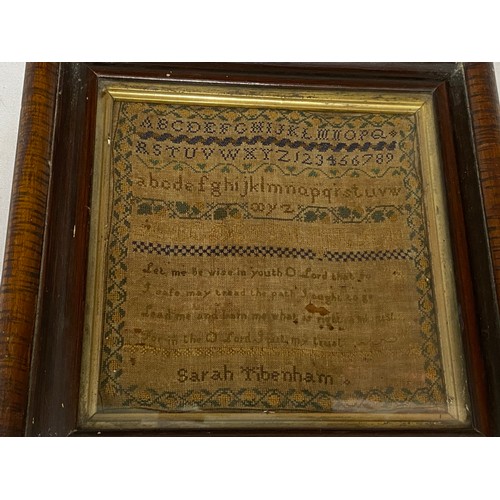 ABCDEFGHIJKLMNOPQ
RSTUVWXYZ123456789
abcdefghijklmnopqrstuvw
xyz
Let me be wise in youth O Lord that
I safe may tread the path I ought to
Lead me and learn me what is
in the O Lord I put my trust
Sarah Tibenham